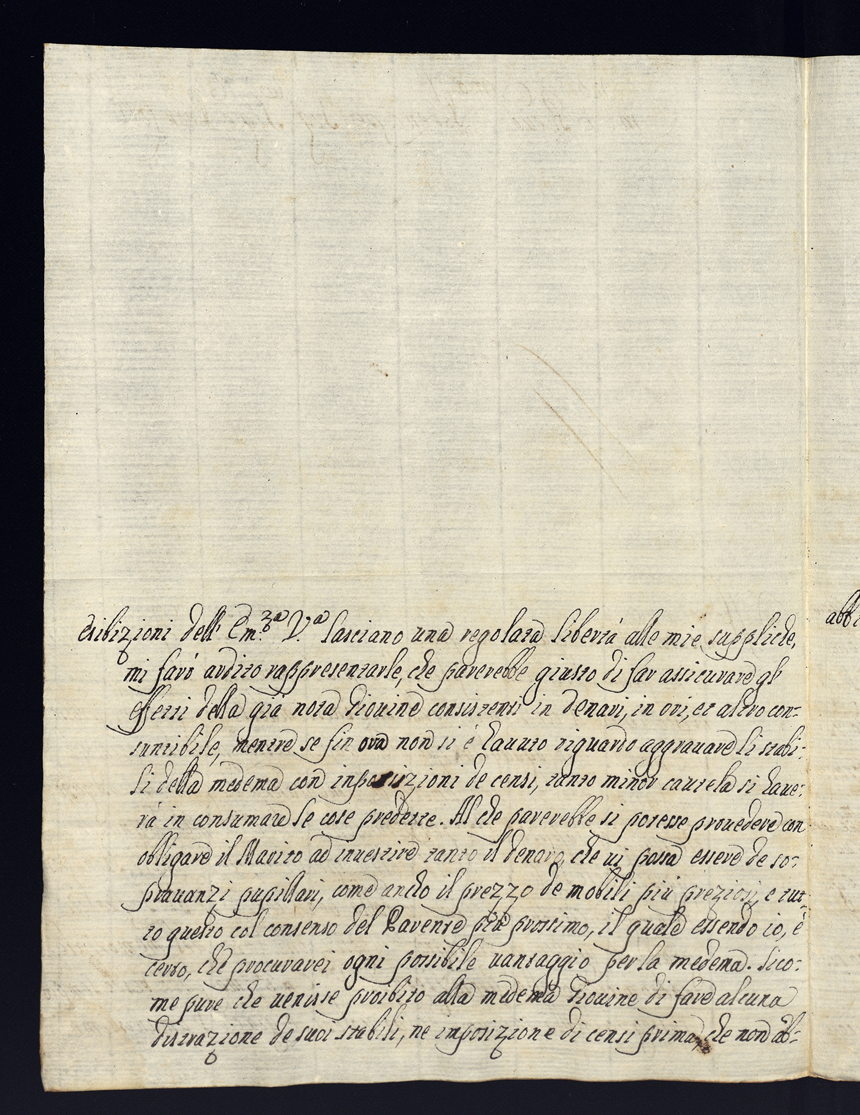 esibizioni dell' Em.za V.a lasciano una regolata libertà alle mie suppliche,
mi farò ardito rappresentarle, che parerebbe giusto di far assicurare gl'
effetti della già nota Giovine consistenti in denari, in ori, et altro con-
suntibile, mentre se fin ora non si è havuto riguardo aggravare li stabi-
li della medema con imposizioni de censi, tanto minor cautela si have-
rà in consumare le cose predette. Al che parerebbe si potesse provedere con
obbligare il Marito ad investire tanto il denaro, che vi possa essere de so-
pravanzi pupillari, come anco il prezzo de mobili più preziosi, e tut-
to questo col consenso del Parente più prossimo, il quale essendo io, è
certo, che procurarei ogni possibile vantaggio per la medema. Sico-
me pure che venisse proibito alla medema Giovine di fare alcuna
distrazione de suoi stabili, ne imposizione di censi prima, che non ab-
abbi